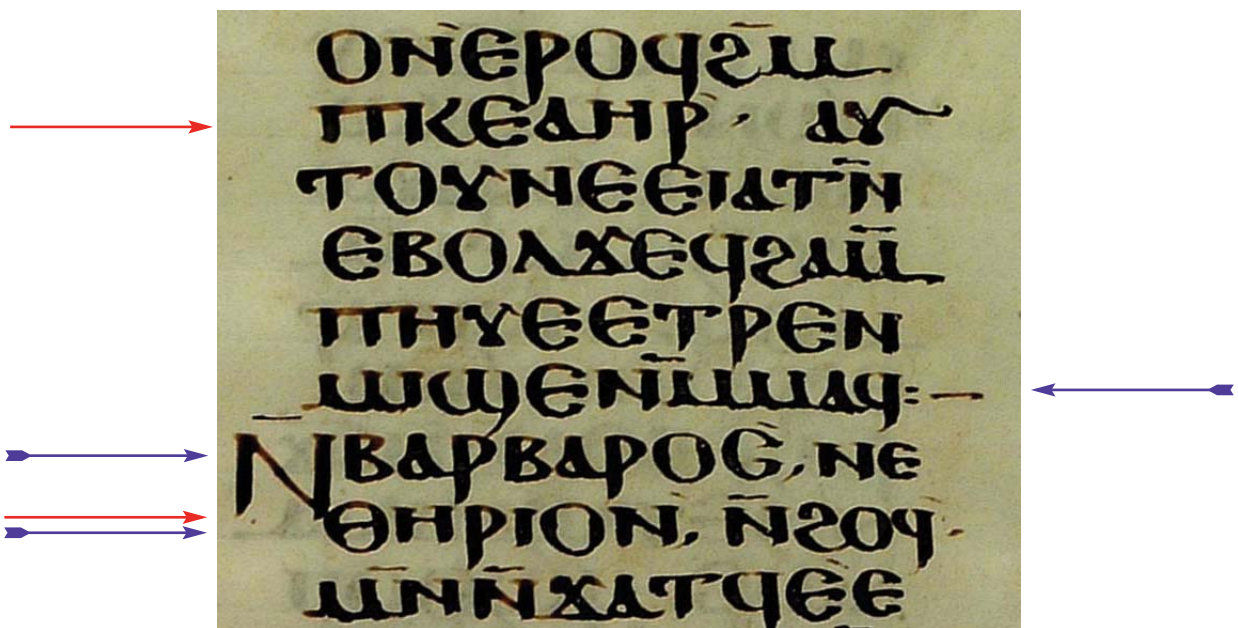 ⲟⲛ̀ⲉⲣⲟϥϩⲙ̄
ⲡⲕⲉⲁⲏⲣ̀· ⲁⲩ
ⲧⲟⲩⲛⲉⲉⲓⲁⲧⲛ̄
ⲉⲃⲟⲗϫⲉϥϩⲁⲙ̄
ⲡⲏⲩⲉⲉⲧⲣⲉⲛ
ⲙⲓϣⲉⲛⲙ̄ⲙⲁϥ:—
ⲛ̄ⲃⲁⲣⲃⲁⲣⲟⲥ̀, ⲛⲉ
ⲑⲏⲣⲓⲟⲛ̀, ⲛ̄ϩⲟϥ·
ⲙⲛ̄ⲛ̄ϫⲁⲧϥⲉ̀ⲉ